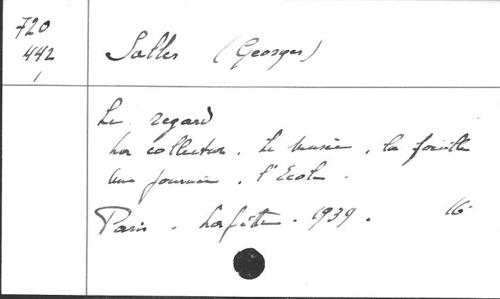 720
442
1
Salles (Georges)
Le regard
La collection. Le musée. la fouille
Une journée. l'Ecole.
Paris. 1939. 16